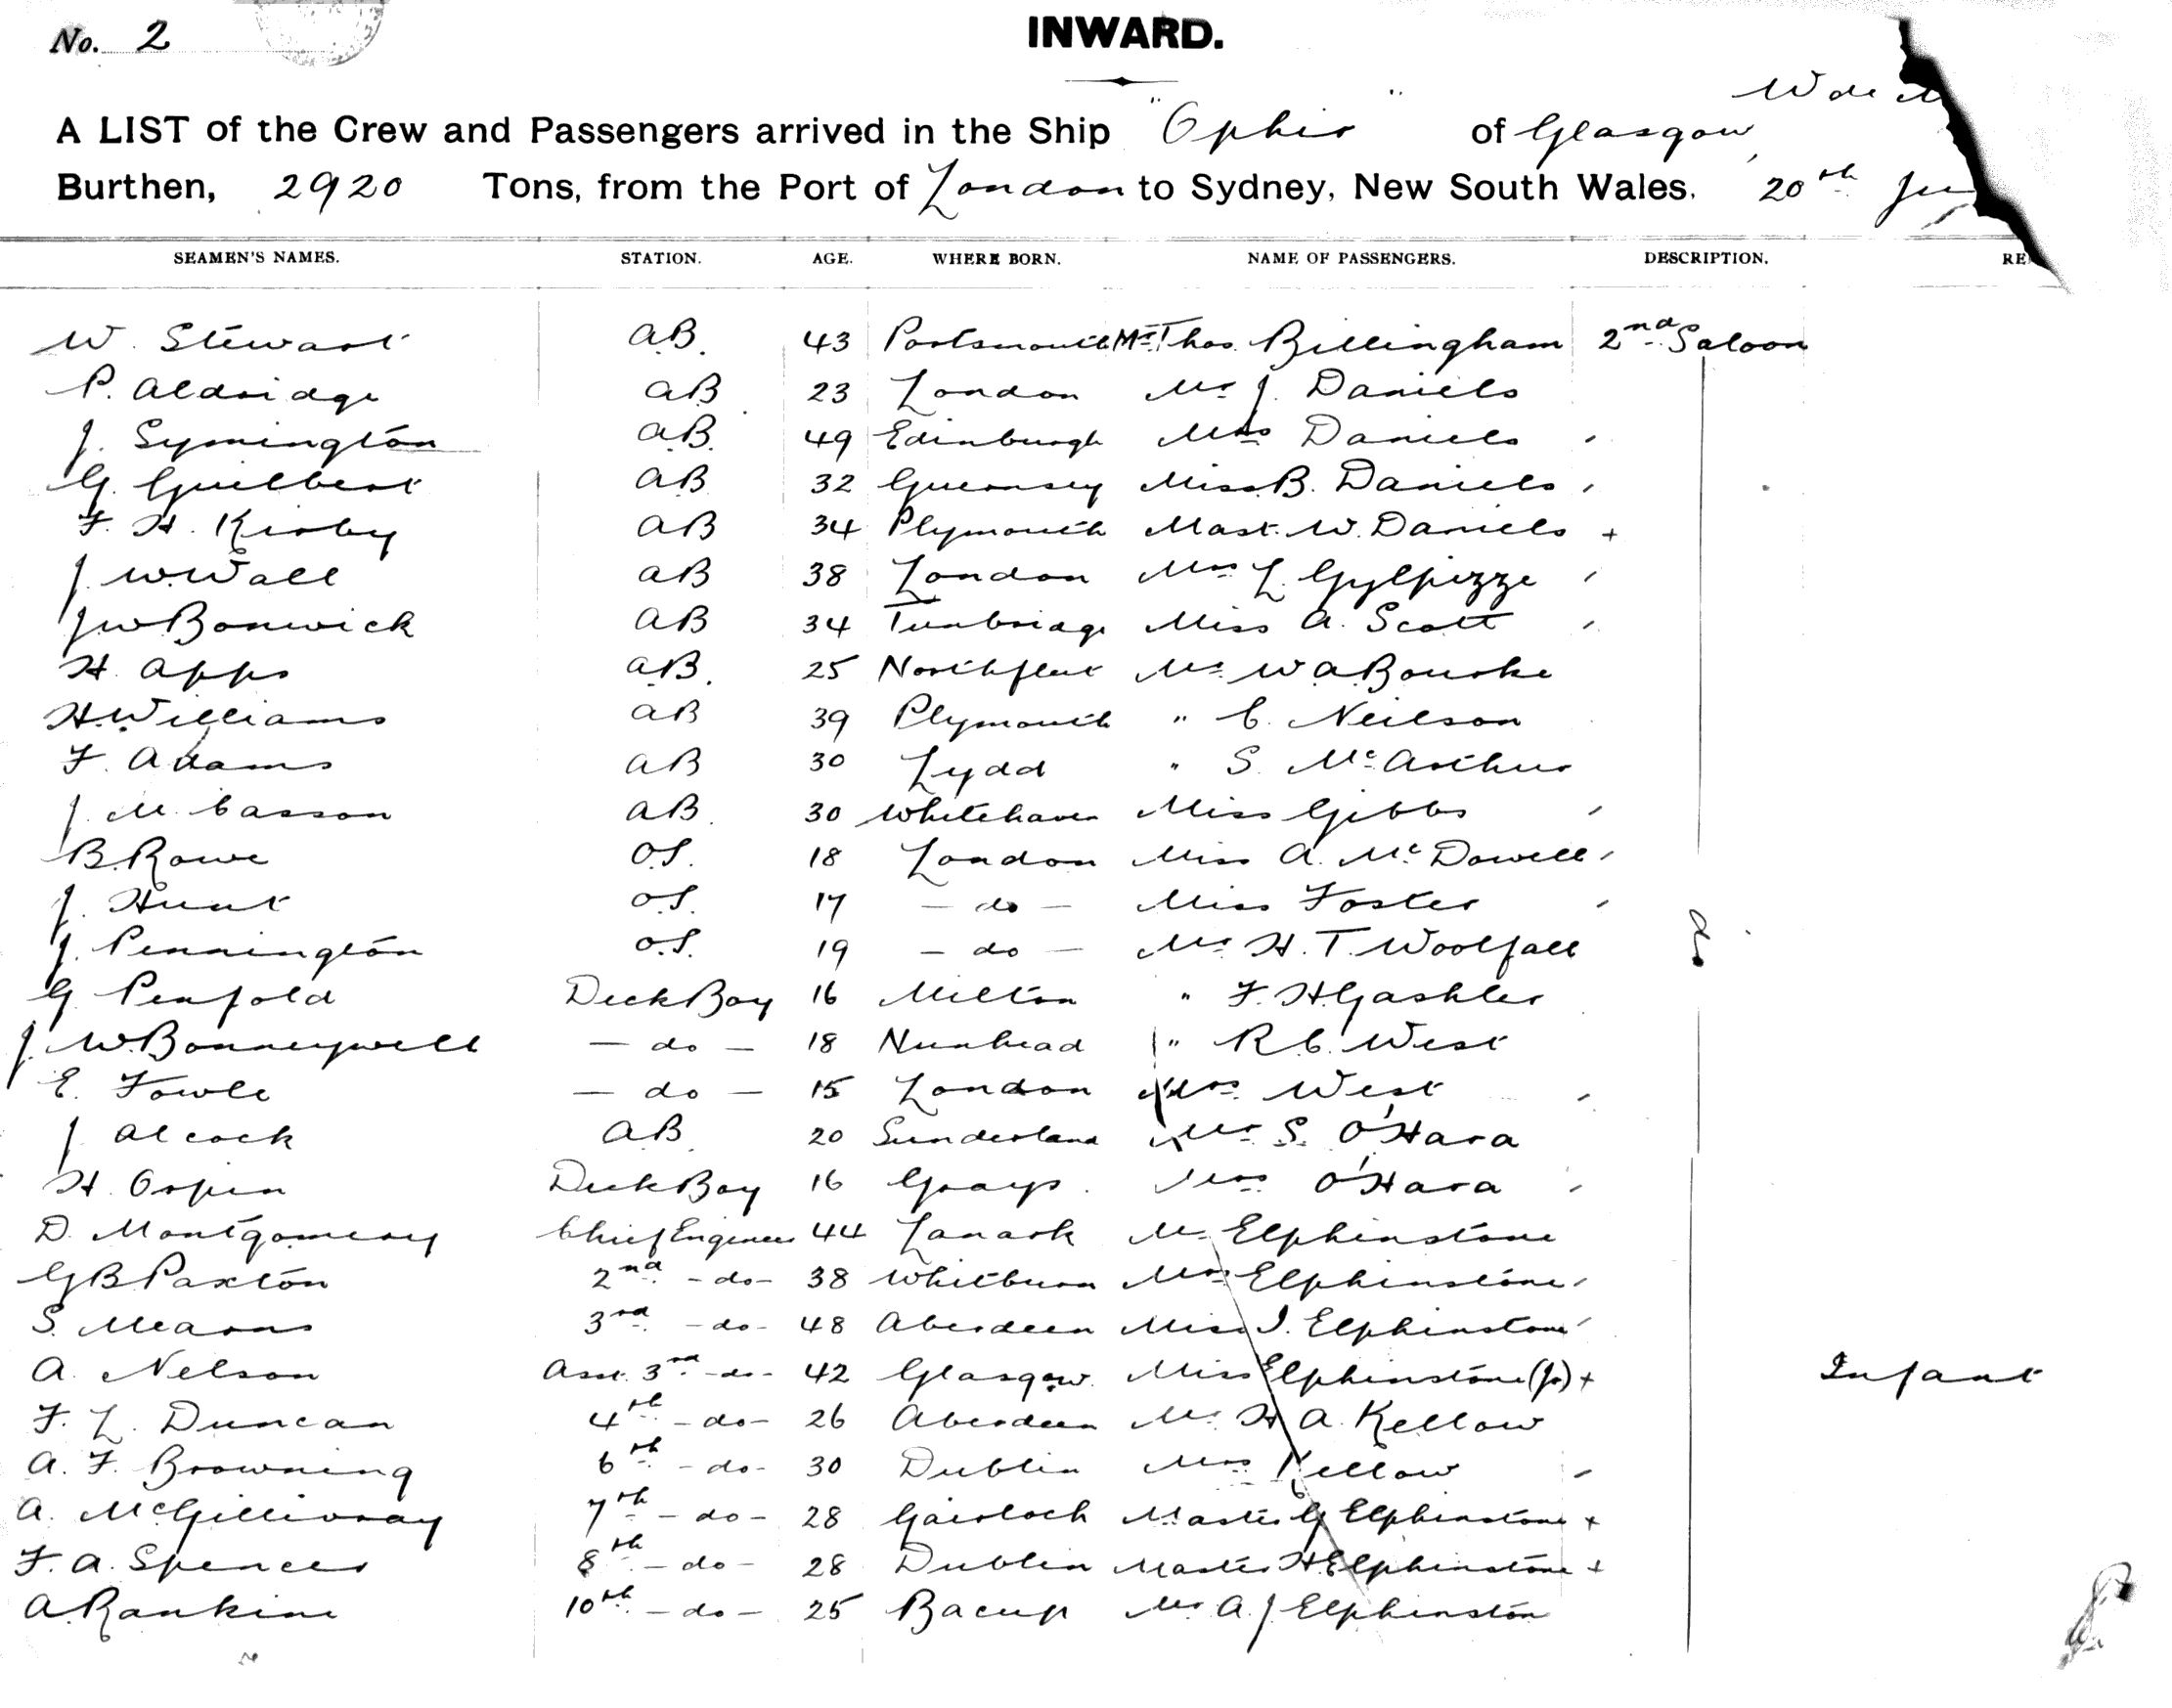 No. 2
INWARD.
A LIST of the Crew and Passengers arrived in the Ship "Ophir" of Glasgow,
Burthen, 2920 Tons, from the Port of London to Sydney, New South Wales. 20th
SEAMEN'S NAMES. STATION. AGE. WHERE BORN. NAME OF PASSENGERS. DESCRIPTION.
W. Stewart A.B. 43 Portsmouth Mr. Thos. Billingham 2nd Saloon
P. Aldridge AB 23 London Mr J. Daniels
J. Symington A.B. 49 Edinburgh Mrs Daniels ,
G. Guilbert AB 32 Guernsey Miss B. Daniels ,
F. H. Kirby AB 34 Plymouth Mast. W. Daniels +
J. W. Wall AB 38 London L. ,
J W Bonwick AB 34 Tunbridge Miss A. Scott ,
H. Apps A.B. 25 Northfleet Mr. W A Bourke
H. Williams AB 39 Plymouth " C. Neilson
F. Adams AB 30 Lydd " S. McArthur
J. M. Casson AB. 30 Whitehaven Miss Gibbs ,
B. Rowe O.S. 18 London Miss A. McDowell ,
J. Hunt O.S. 17 - do - Miss Foster ,
J. Pennington O.S. 19 - do - Mr H. T. Woolfall do
G. Penfold Deck Boy 16 Milton " F. H. Gashler
J. W. Bonneywell - do - 18 Nunhead " R C. West
E. Fowle - do - 15 London Mrs. West ,
J Alcock AB 20 Sunderland Mr S. O'Hara
H. Orpin Deck Boy 16 Grays. Mrs O'Hara ,
D. Montgomery Chief Engineer 44 Lanark Mr Elphinstone
G B Paxton 2nd - do - 38 Whitburn Mrs Elphinstone ,
S. Mearns 3rd - do - 48 Aberdeen Miss I. Elphinstone ,
A. Nelson Asst. 3rd - do - 42 Glasgow. Miss Elphinstone (Jr) + Infant
F. L. Duncan 4th - do - 26 Aberdeen Mr H A. Kellow
A. F. Browning 6th - do - 30 Dublin Mrs Kellow ,
A. McGillivray 7th - do - 28 Gairloch Master G Elphinstone +
F. A. Spencer 8th - do - 28 Dublin Master H. Elphinstone +
A. Rankine 10th - do - 25 Bacup Mr A. J Elphinston